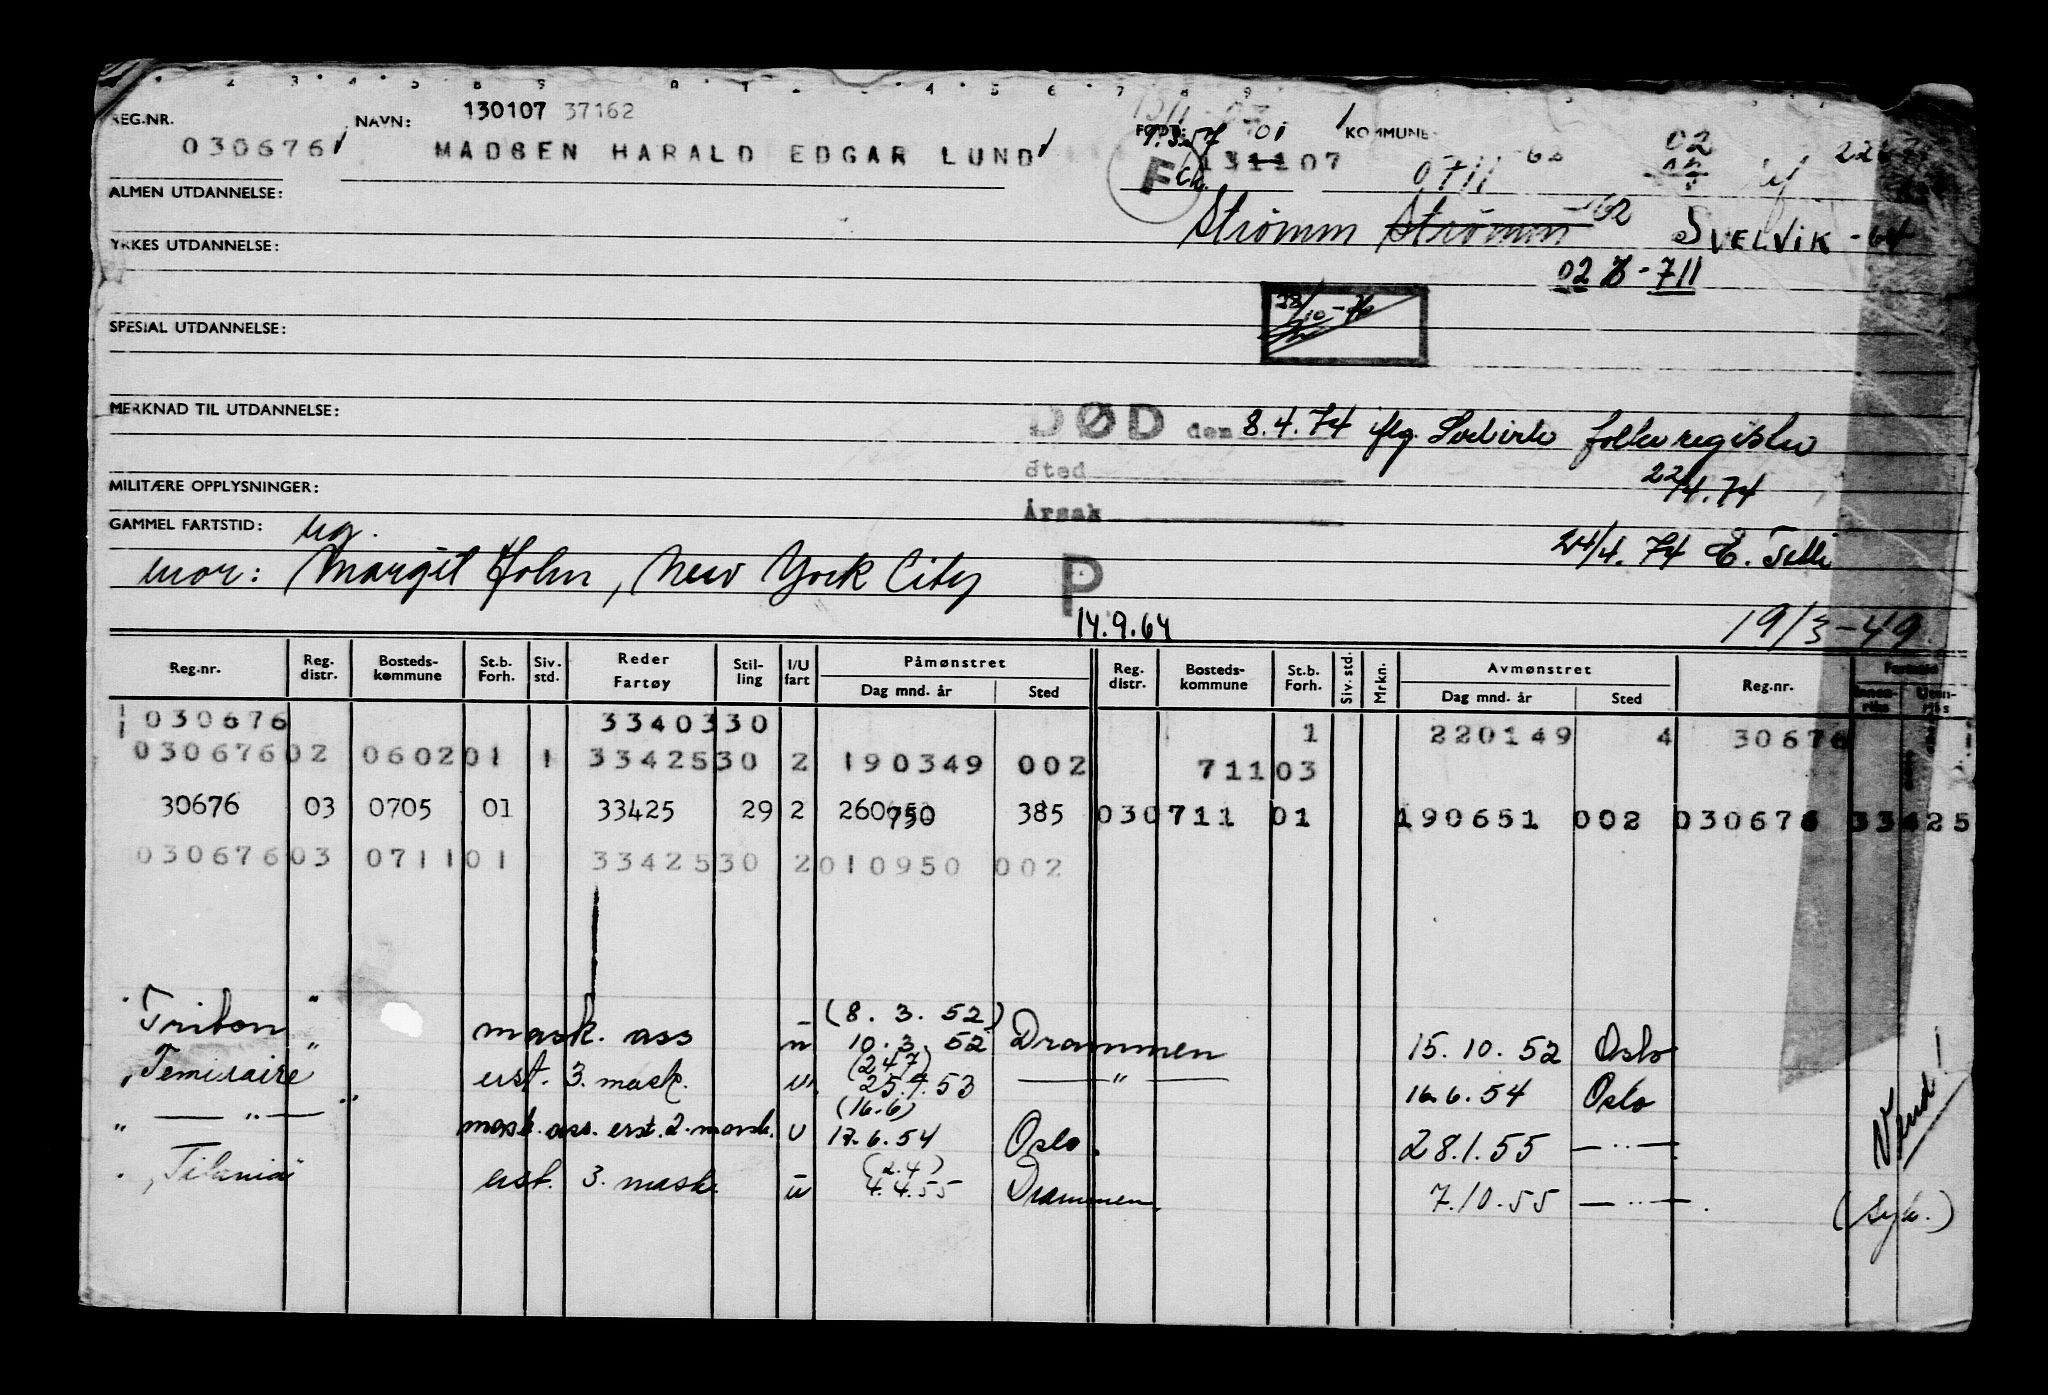 130107 37162
REG.NR. NAVN: FØDT: KOMMUNE
030676 MADSEN HARALD EDGAR LUND 131107 01 0711 -62 02
F
ALMEN UTDANNELSE:
Strømm Strømm -62 SVELVIK -64
YRKES UTDANNELSE:
02 7-711
10-76
SPESIAL UTDANNELSE:
MERKNAD TIL UTDANNELSE:
DØD den 8.4.74 iflg. folkeregister
Sted
22/4.74
MILITÆRE OPPLYSNINGER:
Årsak
GAMMEL FARTSTID: ug.
24/4.74 E.
mor: Margit Holm, New York City P
14.9.64 19/3-49
Reg.nr. Reg. distr. Bosteds-kommune St.b. Forh. Siv. std. Reder Fartøy Stil-ling I/U fart Påmønstret Dag mnd. år Sted Reg. distr. Bosteds-kommune St.b. Forh. Siv. std. Mrkn. Avmønstret Dag mnd. år Sted Reg.nr. Fartstid Innen-riks Uten-riks
030676 3340330 1 220149 4 30676
03067602 060201 1 3342530 2 190349 002 71103
30676 03 0705 01 33425 29 2 260750 385 030711 01 190651 002 030676 33425
03067603 071101 3342530 2 010950 002
(8. 3. 52)
Triton " mask. ass u 10.3.52 Drammen 15.10.52 Oslo
(24.7)
Temeraire " erst. 3. mask. u. 25.7.53 — " — 16.6.54 Oslo
(16.6)
" — " — " mask. ass. erst. 2. mask. U 17.6.54 Oslo. 28.1.55 — " —
Vend!
(2.4)
Titania erst. 3. mask. u 4.4.55 Drammen. 7.10.55 — " —.
(syk.)